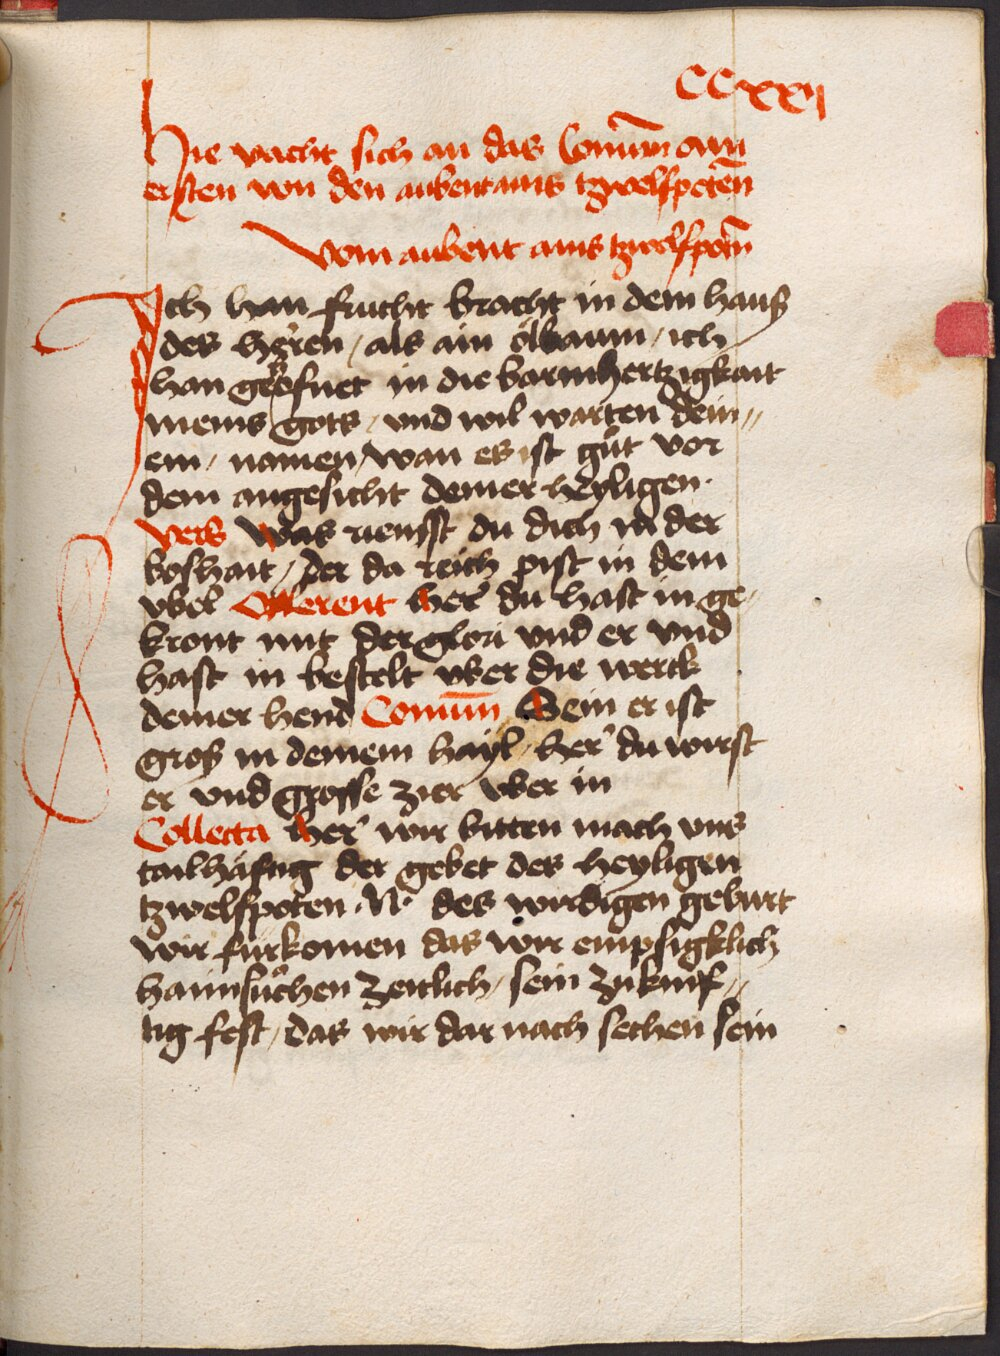 CCxxij
Hie vacht sich an das Comūn am
ersten von den aubent ains tzwelfpotēn
Vom aubent ains tzwelfpotn̄
Ich han frucht bracht in dem hauß
des herren / als ain ölbaum / ich
han geöfnet in die barmhertzigkait
meins gots / und wil warten dein〃
em / namen / wan es ist gůt vor
dem angesicht deiner heyligen ·
Vers Was riemsst du dich in der
boshait / der da reich pist in dem
vbel Offerent Her du hast in ge〃
kront mit der glori vnd er vnd
hast in bestelt vber die werck
deiner hend Comūn Sein er ist
groß in deinem hayl / her du wirst
er vnd grosse zier vber in
Collecta Her wir bitten mach vns
tailhäftig der gebet des heyligen
tzwelfpoten · N · des wirdigen geburt
wir fürkomen das wir empsigklich
haimsůchen zeitlich / sein zůkunf〃
tig fest / das wir dar nach sechen sein